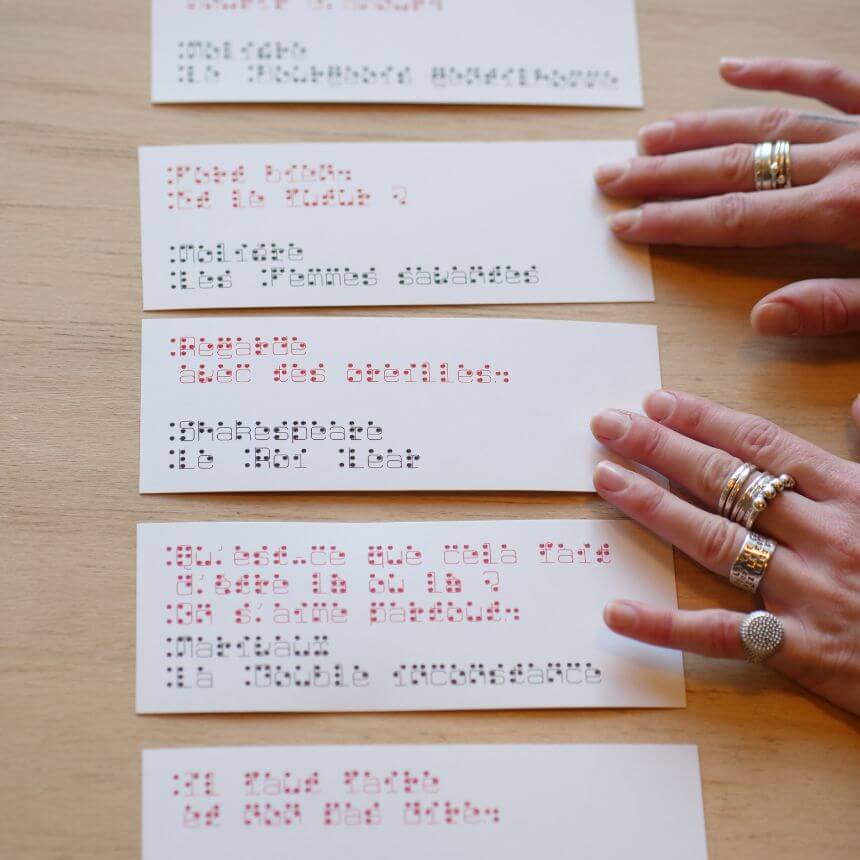 Molière
Le Bourgeois gentilhomme
Fort bien.
Et le futur ?
Molière
Les Femmes savantes
Regarde
avec tes oreilles.
Shakespeare
Le Roi Lear
Qu'est-ce que cela fait
d'être là ou là ?
On s'aime partout.
Marivaux
La Double inconstance
Il faut faire
et non pas dire.